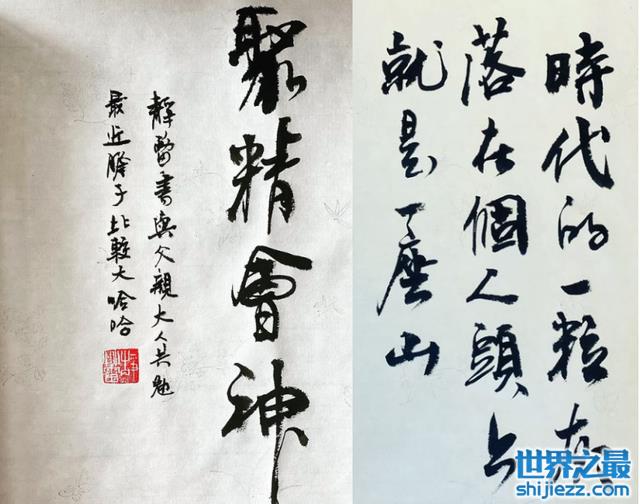 聚精會神
靜蕾書與父親大人共勉
最近膽子比較大哈哈
時代的一粒灰
落在個人頭上
就是一座山
世界之最
shijiezz.com